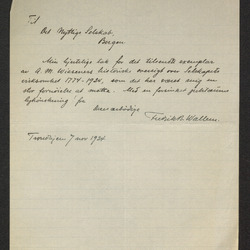 Til
Det Nyttige Selskab,
Bergen.
Min hjerteligste tak for det tilsendte exemplar
av A. M. Wiesener's historiske oversigt over Selskapets
virksomhet 1774-1924, som det har været mig en
stor fornöielse at motta. Med en forsinket jubilæums
lykönskning for
Deres ærbödige
Fredrik B. Wallem.
Trondhjem 7 nov 1924.